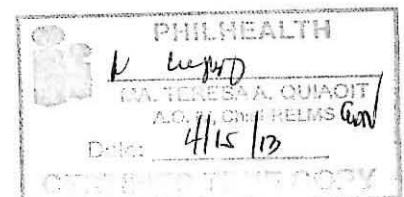 PHILHEALTH
MA. TERESA A. QUIAOIT
A.O. Chief RELMS
Date: 4/15/13
CERTIFIED TRUE COPY